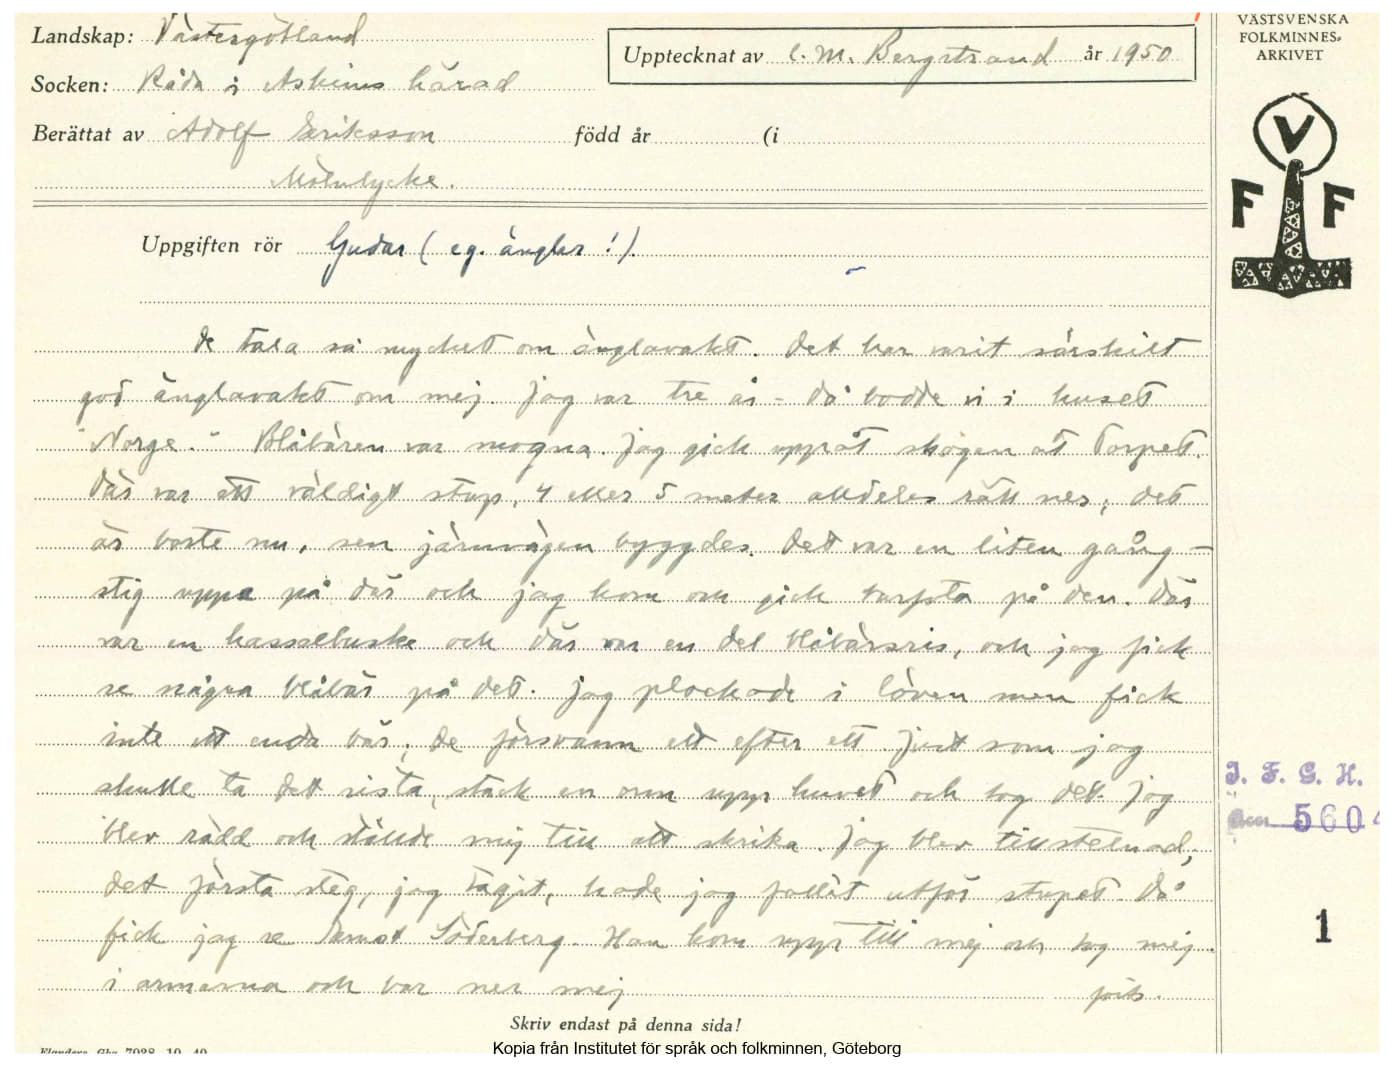 Landskap: Västergötland
Upptecknat av C. M. Bergstrand år 1950
VÄSTSVENSKA
FOLKMINNES-
ARKIVET
Socken: Råda i Askims härad
Berättat av Adolf Eriksson född år (i
Mölnlycke.
V
F F
Uppgiften rör Gudar (eg. änglar!).
De tala så mycket om änglavakt. Det har varit särskilt
god änglavakt om mej. Jag var tre år - då bodde vi i huset
"Norge." Blåbären var mogna. Jag gick uppåt skogen åt Torpet.
Där var ett väldigt stup, 4 eller 5 meter alldeles rätt ner, det
är borte nu, sen järnvägen byggdes. Det var en liten gång-
stig uppe på där och jag kom och gick barfota på den. Där
var en hasselbuske och där var en del blåbärsris, och jag fick
se några blåbär på det. Jag plockade i löven men fick
inte ett enda bär, de försvann ett efter ett. Just som jag
skulle ta det sista, stack en orm upp huvet och tog det. Jag
blev rädd och ställde mej till att skrika. Jag blev tillstelnad,
det första steg, jag tagit, hade jag fallit utför stupet. Då
fick jag se Ernst Söderberg. Han kom upp till mej och tog mej
i armarna och bar ner mej
forts.
I. F. G. H.
5604
1
Skriv endast på denna sida!
Elanders, Gbg 7038 10 49
Kopia från Institutet för språk och folkminnen, Göteborg